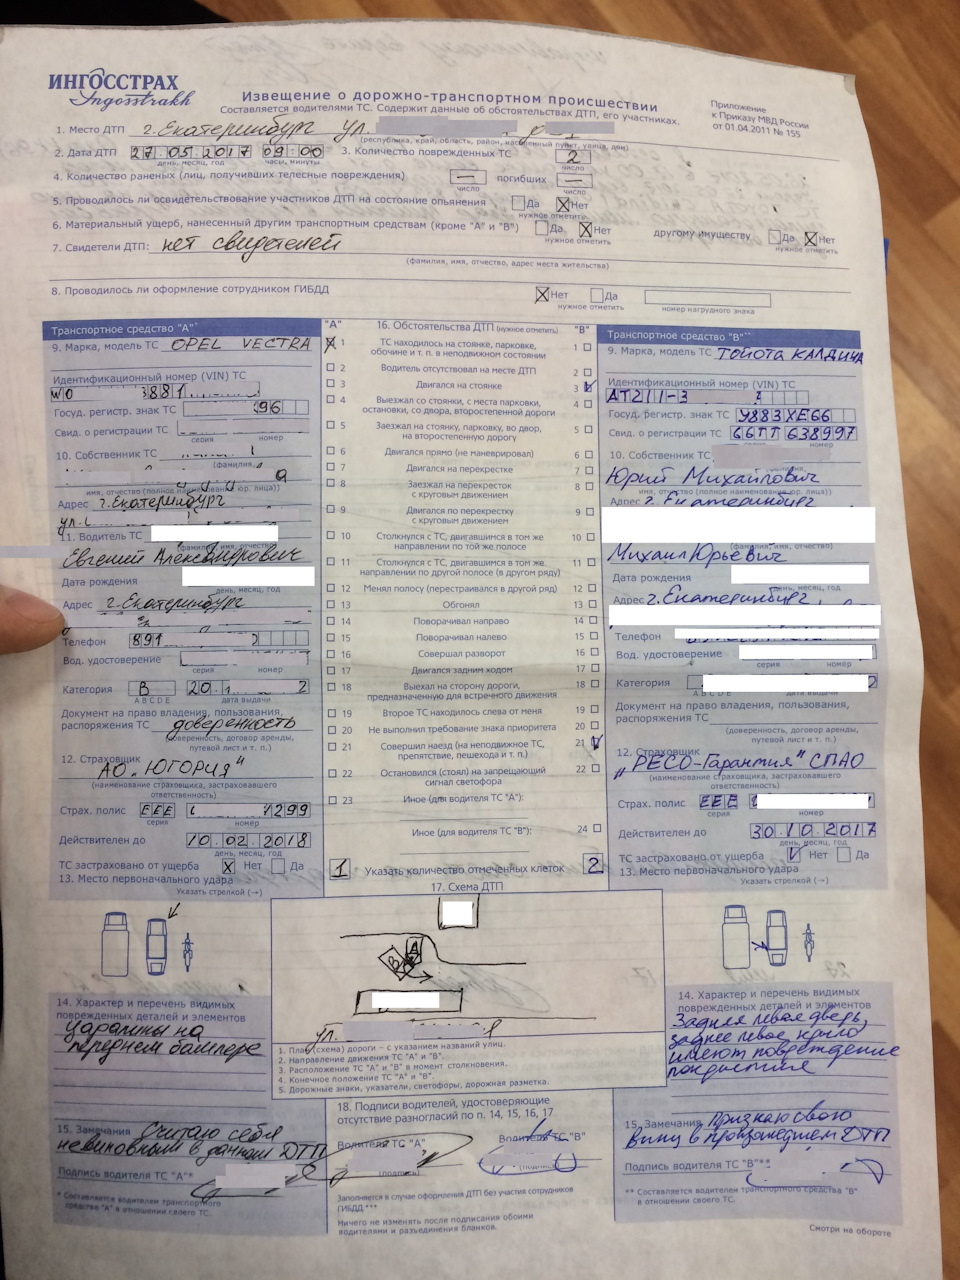 ИНГОССТРАХ
Ingosstrakh
Извещение о дорожно-транспортном происшествии
Составляется водителями ТС. Содержит данные об обстоятельствах ДТП, его участниках.
Приложение
к Приказу МВД России
от 01.04.2011 № 155
1. Место ДТП г. Екатеринбург ул.
(республика, край, область, район, населенный пункт, улица, дом)
2. Дата ДТП 27.05.2017 09:00 3. Количество поврежденных ТС 2
день, месяц, год часы, минуты число
4. Количество раненых (лиц, получивших телесные повреждения) — погибших —
число число
5. Проводилось ли освидетельствование участников ДТП на состояние опьянения Да Нет
нужное отметить
6. Материальый ущерб, нанесенный другим транспортным средствам (кроме "А" и "В") Да Нет другому имуществу Да Нет
нужное отметить нужное отметить
7. Свидетели ДТП: нет свидетелей
(фамилия, имя, отчество, адрес места жительства)
8. Проводилось ли оформление сотрудником ГИБДД Нет Да
нужное отметить номер нагрудного знака
Транспортное средство "А"
9. Марка, модель ТС OPEL VECTRA
Идентификационный номер (VIN) ТС
W0 881
Госуд. регистр. знак ТС 96
Свид. о регистрации ТС
серия номер
10. Собственник ТС
(фамилия,
имя, отчество (полное наименование юр. лица))
Адрес г. Екатеринбург
ул.
11. Водитель ТС
(фамилия, имя, отчество)
Евгений Александрович
Дата рождения
день, месяц, год
Адрес г. Екатеринбург
Телефон 891
Вод. удостоверение
серия номер
Категория B 20. 2
A B C D E дата выдачи
Документ на право владения, пользования,
распоряжения ТС доверенность
(доверенность, договор аренды,
путевой лист и т. п.)
12. Страховщик
АО "ЮГОРИЯ"
(наименование страховщика, застраховавшего
ответственность)
Страх. полис ЕЕЕ 1299
серия номер
Действителен до 10.02.2018
день, месяц, год
ТС застраховано от ущерба Нет Да
13. Место первоначального удара
Указать стрелкой (→)
14. Характер и перечень видимых
поврежденных деталей и элементов
Царапины на
переднем бампере
15. Замечания Считаю себя
невиновным в данном ДТП
Подпись водителя ТС "А"*
* Составляется водителем транспортного
средства "А" в отношении своего ТС.
"А" 16. Обстоятельства ДТП (нужное отметить) "В"
1 ТС находилось на стоянке, парковке,
обочине и т. п. в неподвижном состоянии 1
2 Водитель отсутствовал на месте ДТП 2
3 Двигался на стоянке 3
4 Выезжал со стоянки, с места парковки,
остановки, со двора, второстепенной дороги 4
5 Заезжал на стоянку, парковку, во двор,
на второстепенную дорогу 5
6 Двигался прямо (не маневрировал) 6
7 Двигался на перекрестке 7
8 Заезжал на перекресток
с круговым движением 8
9 Двигался по перекрестку
с круговым движением 9
10 Столкнулся с ТС, двигавшимся в том же
направлении по той же полосе 10
11 Столкнулся с ТС, двигавшимся в том же
направлении по другой полосе (в другом ряду) 11
12 Менял полосу (перестраивался в другой ряд) 12
13 Обгонял 13
14 Поворачивал направо 14
15 Поворачивал налево 15
16 Совершал разворот 16
17 Двигался задним ходом 17
18 Выехал на сторону дороги,
предназначенную для встречного движения 18
19 Второе ТС находилось слева от меня 19
20 Не выполнил требование знака приоритета 20
21 Совершил наезд (на неподвижное ТС,
препятствие, пешехода и т. п.) 21
22 Остановился (стоял) на запрещающий
сигнал светофора 22
23 Иное (для водителя ТС "А"):
Иное (для водителя ТС "В"): 24
1 Указать количество отмеченных клеток 2
17. Схема ДТП
А
В
ул.
1. План (схема) дороги – с указанием названий улиц.
2. Направление движения ТС "А" и "В".
3. Расположение ТС "А" и "В" в момент столкновения.
4. Конечное положение ТС "А" и "В".
5. Дорожные знаки, указатели, светофоры, дорожная разметка.
18. Подписи водителей, удостоверяющие
отсутствие разногласий по п. 14, 15, 16, 17
Водитель ТС "А" Водитель ТС "В"
(подпись) (подпись)
Заполняется в случае оформления ДТП без участия сотрудников
ГИБДД.***
Ничего не изменять после подписания обоими
водителями и разъединения бланков.
Транспортное средство "В"
9. Марка, модель ТС ТОЙОТА КАЛДИНА
Идентификационный номер (VIN) ТС
AT211-3
Госуд. регистр. знак ТС У883ХЕ66
Свид. о регистрации ТС 66ТТ 638997
серия номер
10. Собственник ТС
Юрий Михайлович
имя, отчество (полное наименование юр. лица))
Адрес г. Екатеринбург
(фамилия, имя, отчество)
Михаил Юрьевич
Дата рождения
день, месяц, год
Адрес г. Екатеринбург,
Телефон
Вод. удостоверение
серия номер
Категория
A B C D E дата выдачи
Документ на право владения, пользования,
распоряжения ТС
(доверенность, договор аренды,
путевой лист и т. п.)
12. Страховщик
"РЕСО-Гарантия" СПАО
(наименование страховщика, застраховавшего
ответственность)
Страх. полис ЕЕЕ
серия номер
Действителен до 30.10.2017
день, месяц, год
ТС застраховано от ущерба Нет Да
13. Место первоначального удара
Указать стрелкой (→)
14. Характер и перечень видимых
поврежденных деталей и элементов
Задняя левая дверь,
заднее левое крыло
имеют повреждение
покрытия
15. Замечания Признаю свою
вину в произошедшем ДТП
Подпись водителя ТС "В"**
** Составляется водителем транспортного средства "В"
в отношении своего ТС.
Смотри на обороте